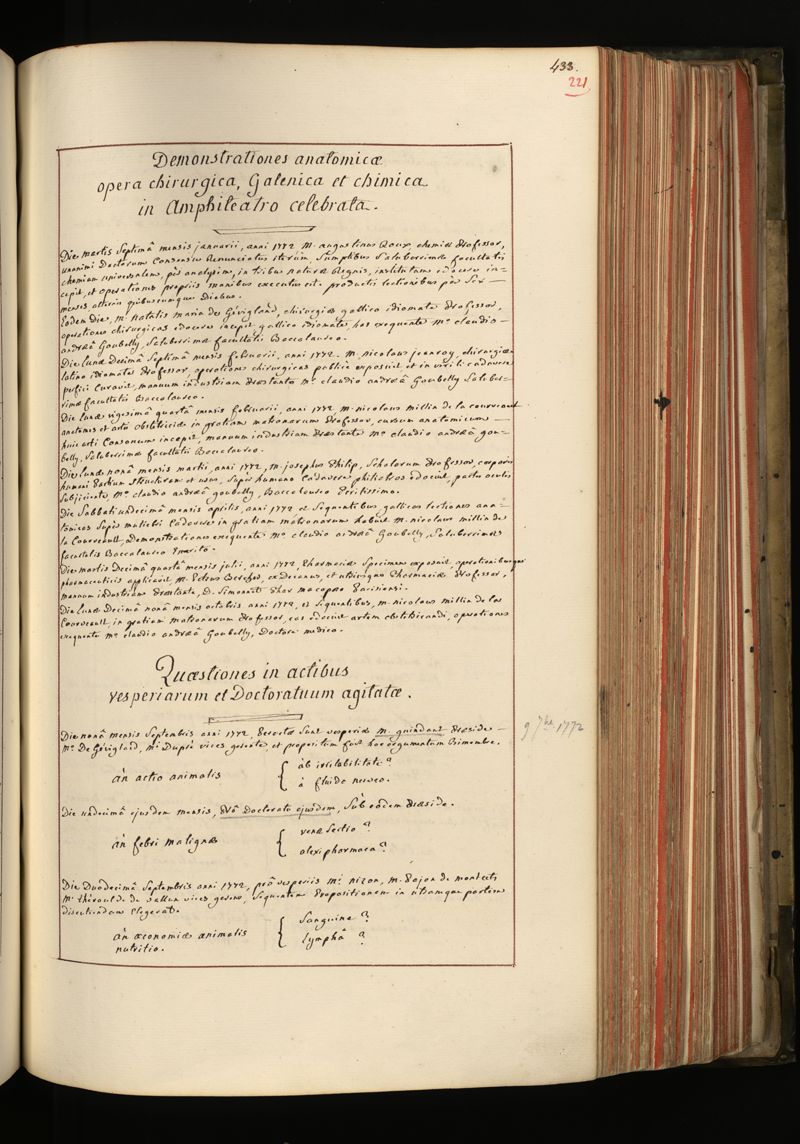 433.
221
Demonstrationes anatomicæ
opera chirurgica, Galenica et chimica
in Amphiteatro celebrata.
Die martis Septimâ mensis januarii, anni 1772 M. augustinus Roux, chemiæ Professor,
unanimi Doctorum Consensu Renunciatus iterùm, Sumptibus Saluberrimæ facultatis
chemiam universalem, per analysim, in tribus naturæ Regnis, institutam edocere in-
cepit, et operationes propriis manibus executus est. productis lectionibus per Sex
menses alternis quibuscumque Diebus.
Eodem die, M. Natalis Maria de Gévigland, chirurgiæ gallico idiomate Professor,
operationes chirurgicas edocere incepit gallico idiomate, has exequente Mo. claudio
andreâ Goubelly, Saluberrimæ facultatis Baccalaureo.
Die Lunæ Decimâ Septimâ mensis februarii, anni 1772. M. nicolaus jeanroy, chirurgiæ
latino idiomate Professor, operationes chirurgicas publicè exposuit et in virili cadavere
perfici Curavit, manuum industriam Præstante Mo. claudio andreâ Goubelly Saluber-
rimæ facultatis Baccalaureo.
Die Lunæ vigesimâ quartâ mensis februarii, anni 1772 M. nicolaus millin de la courveault
anatomes et artis obstetriciæ in gratiam matronarum Professor, cursum anatomicum
huic arti Consonum incepit, manuum industriam Præstante Mo. claudio andreâ gou-
belly, Saluberrimæ facultatis Baccalaureo.
Die Lunæ nonâ mensis martii, anni 1772, M. josephus Philip, Scholarum Professor, corporis
humani Partium structuram et usus, Super humano Cadavere philiatros edocuit, partes oculis
Subjiciente, Mo. claudio andreâ goubelly, Baccalaureo Peritissimo.
Die Sabbati undecimâ mensis aprilis, anni 1772 et Sequentibus, gallicas lectiones ana-
tomicas Super muliebri Cadavere in gratiam matronarum habuit M. nicolaus millin de
la Courveault, Demonstrationes exequente Mo. claudio andreâ Goubelly, Saluberrimæ
facultatis Baccalaureo Emerito.
Die martis Decimâ quartâ mensis julii, anni 1772 Pharmaciæ Specimen exposuit, operationibusque
pharmaceuticis applicavit, M. Petrus Bercher, exdecanus, et utriusque Pharmaciæ Professor,
manuum industriam Præstante, D. Simonnet Pharmacopæo Parisiensi.
Die Lunæ Decimâ nonâ mensis octobris anni 1772, et Sequentibus, M. nicolaus millin de la
Courveault, in gratiam matronarum Professor, eas edocuit artem obstetricandi, operationes
exequente Mo. claudio andreâ Goubelly, Doctore medico.
Quæstiones in actibus
vesperiarum et Doctoratuum agitatæ.
Die nonâ mensis Septembris anni 1772, Peractæ Sunt vesperiæ M. guindant Præside
Mo. De Gévigland, Mi. Dupré vices gerente, et propositum fuit hoc argumentum Bimembre.
9 7bre 1772
àn actio animalis { àb irritabilitate?
à fluido nerveo.
Die undecimâ ejusdem mensis, Prô Doctoratu ejusdem, Sub eodem Præside.
àn febri malignæ { venæ Sectio?
alexipharmaca?
Die Duodecimâ Septembris anni 1772, prô vesperiis Mi. nizon, M. Pajon de moncets
Mi. thèroulde de vallun vices gerens, Sequentem Propositionem in utramque partem
discutiendam Elegerat.
àn œconomiæ animalis { Sanguine?
nutritio. lymphâ?